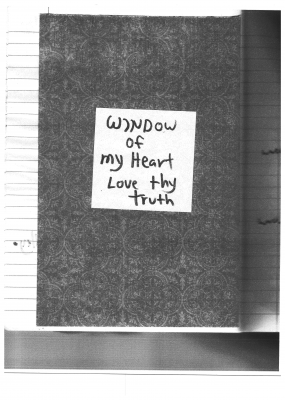 WINDOW
of
my Heart
Love thy
truth